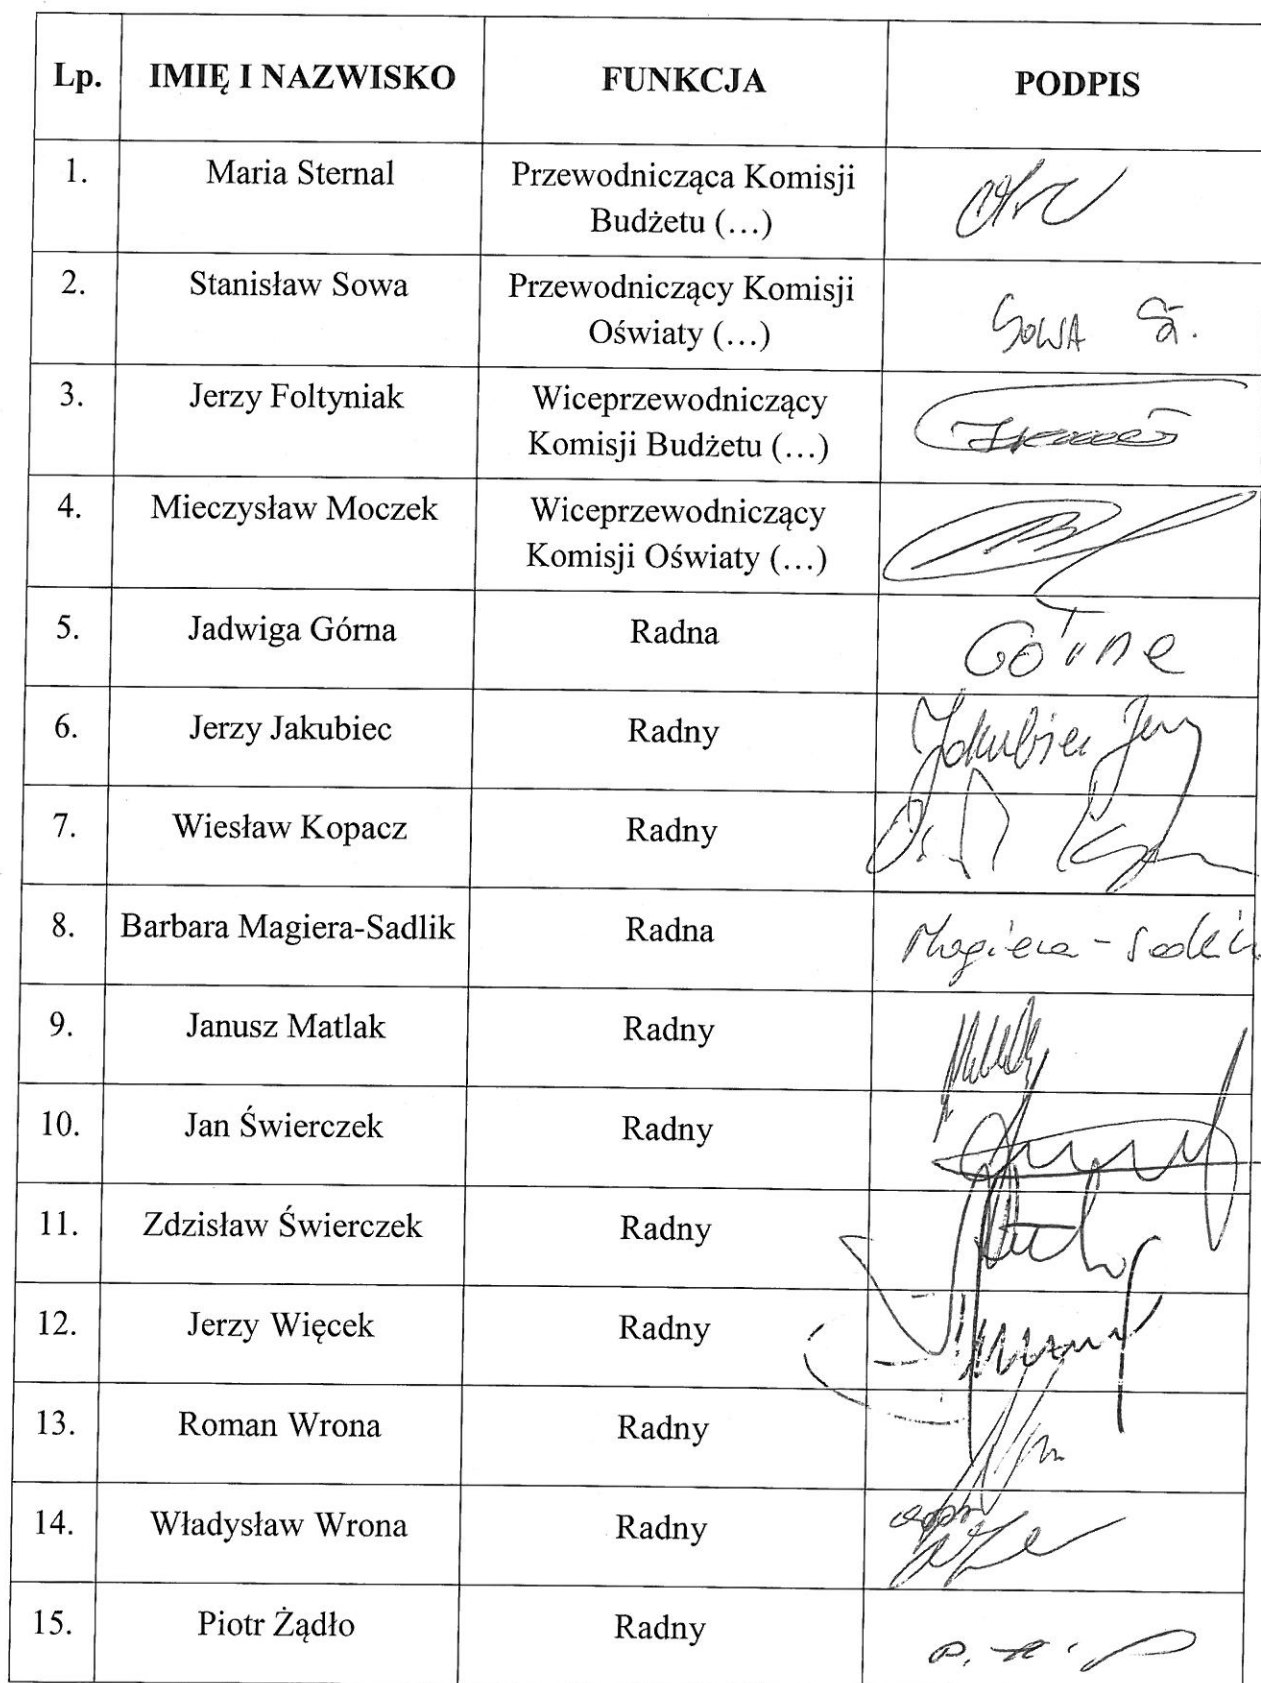 Lp. IMIĘ I NAZWISKO FUNKCJA PODPIS
1. Maria Sternal Przewodnicząca Komisji
Budżetu (…)
2. Stanisław Sowa Przewodniczący Komisji
Oświaty (…) SOWA S.
3. Jerzy Foltyniak Wiceprzewodniczący
Komisji Budżetu (…)
4. Mieczysław Moczek Wiceprzewodniczący
Komisji Oświaty (…)
5. Jadwiga Górna Radna Górna
6. Jerzy Jakubiec Radny Jakubiec Jerzy
7. Wiesław Kopacz Radny
8. Barbara Magiera-Sadlik Radna Magiera-Sadlik
9. Janusz Matlak Radny
10. Jan Świerczek Radny
11. Zdzisław Świerczek Radny
12. Jerzy Więcek Radny
13. Roman Wrona Radny
14. Władysław Wrona Radny
15. Piotr Żądło Radny